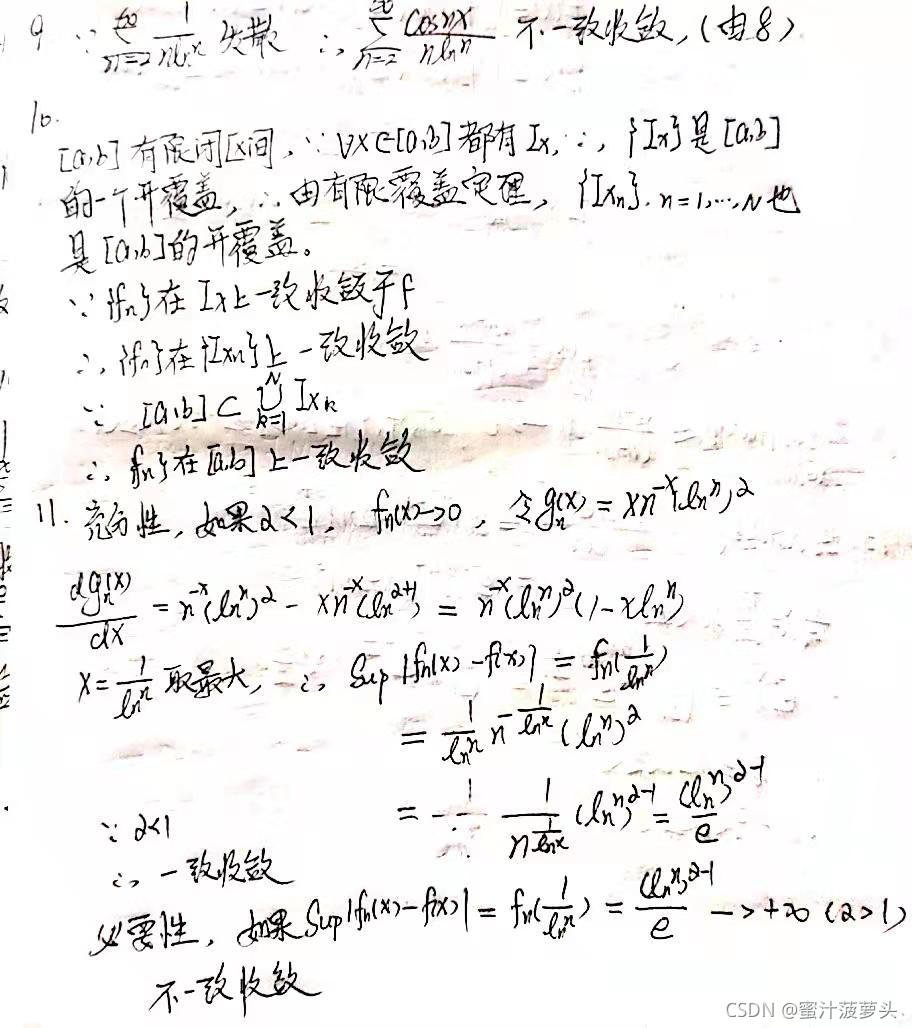 9 ∵ ∑_{n=2}^{∞} 1/(n ln^n) 发散 ∴ ∑_{n=2}^{∞} cosnx/(n ln^n) 不一致收敛,(由8)
10.
[a,b] 有限闭区间,∵ ∀x∈[a,b] 都有 Ix,∴,{Ix}是[a,b]
的一个开覆盖,∴由有限覆盖定理,{Ixn}, n=1,…,N 也
是[a,b]的开覆盖。
∵ {fn}在 Ix上一致收敛于f
∴ {fn}在{Ixn}上一致收敛
∵ [a,b] ⊂ ⋃_{k=1}^{N} Ixk
∴ fn}在[a,b]上一致收敛
11. 充分性,如果α<1, fn(x)->0,令gn(x) = xn^{-x}(ln^n)^α
dgn(x)/dx = n^{-x}(ln^n)^α - xn^{-x}(ln^{α+1}) = n^{-x}(ln^n)^α(1-xln^n)
x = 1/ln^n 取最大,∴ Sup|fn(x)-f(x)| = fn(1/ln^n)
= 1/ln^n n^{-1/ln^n} (ln^n)^α
= 1/n^{1/ln^n} (ln^n)^{α-1} = (ln^n)^{α-1}/e
∵ α<1
∴ 一致收敛
必要性,如果Sup|fn(x)-f(x)| = fn(1/ln^n) = (ln^n)^{α-1}/e -> +∞ (α>1)
不一致收敛
CSDN @蜜汁菠萝头.